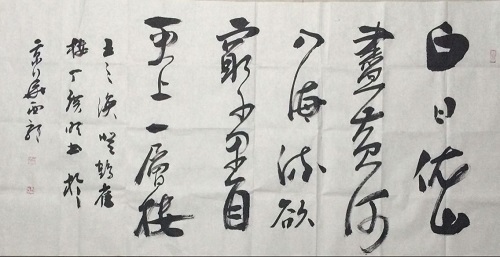 白日依山
盡黃河
入海流欲
窮千里目
更上一層樓
王之渙登鸛雀
樓丁書於
京